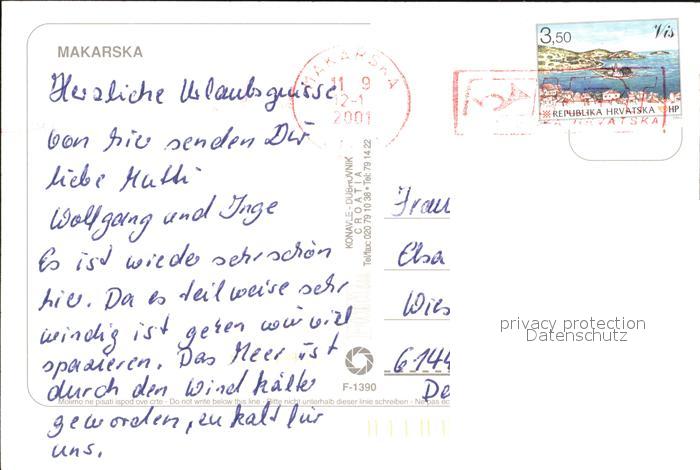 MAKARSKA
Herzliche Urlaubsgrüsse
von hier senden Dir
liebe Mutti
Wolfgang und Inge
Es ist wieder sehr schön
hier. Da es teilweise sehr
windig ist gehen wir viel
spazieren. Das Meer ist
durch den Wind kälter
geworden, zu kalt für
uns.
MAKARSKA
11 9
12-1
2001
3,50
Vis
REPUBLIKA HRVATSKA
HP
KONAVLE - DUBROVNIK
CROATIA
Tel/fax: 020 79 10 38 • Tel: 79 14 22
Frau
Elsa
Wies
6144
De
F-1390
Molimo ne pisati ispod ove crte - Do not write below this line - Bitte nicht unterhalb dieser linie schreiben - Ne pas éc
privacy protection
Datenschutz